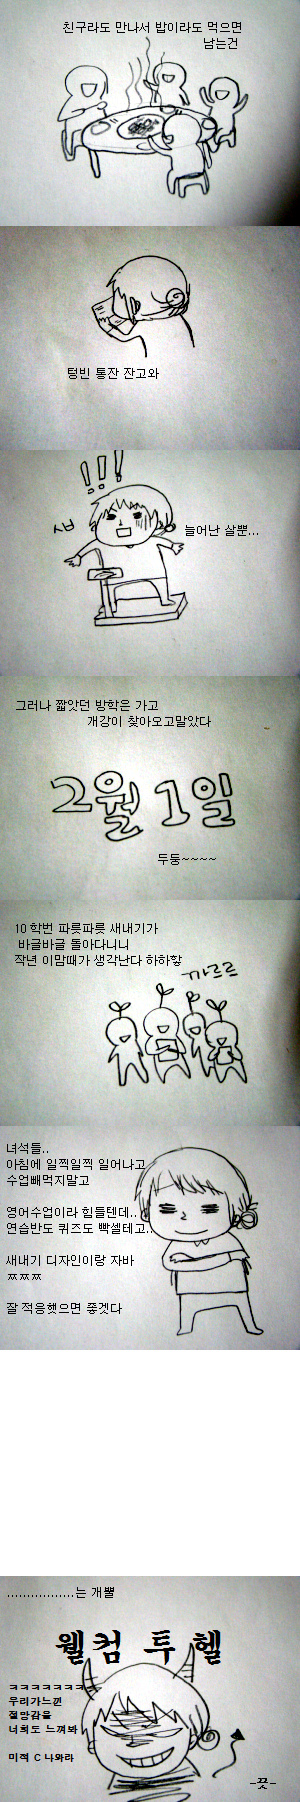 친구라도 만나서 밥이라도 먹으면
남는건
텅빈 통잔 잔고와
!!!
늘어난 살뿐...
그러나 짧앗던 방학은 가고
개강이 찾아오고말았다
2월 1일
두둥~~~~
10 학번 파릇파릇 새내기가
바글바글 돌아다니니
작년 이맘때가 생각난다 하하핳
까르르
녀석들..
아침에 일찍일찍 일어나고
수업빼먹지말고
영어수업이라 힘들텐데..
연습반도 퀴즈도 빡셀테고..
새내기 디자인이랑 자바
ㅉㅉㅉ
잘 적응햇으면 좋겟다
.................는 개뿔
웰컴 투 헬
ㅋㅋㅋㅋㅋㅋㅋ
우리가느낀
절망감을
너희도 느껴봐
미적 C 나와라
-끗-